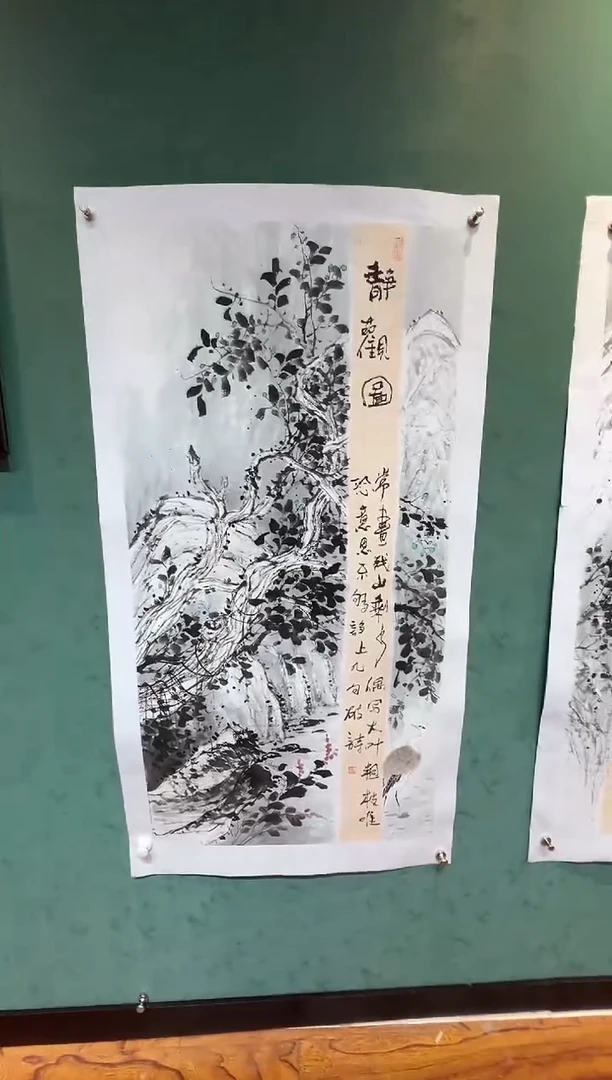 靜觀圖
常畫殘山剩水偶寫大叶粗枝唯
恐意思不够詩上几句破詩